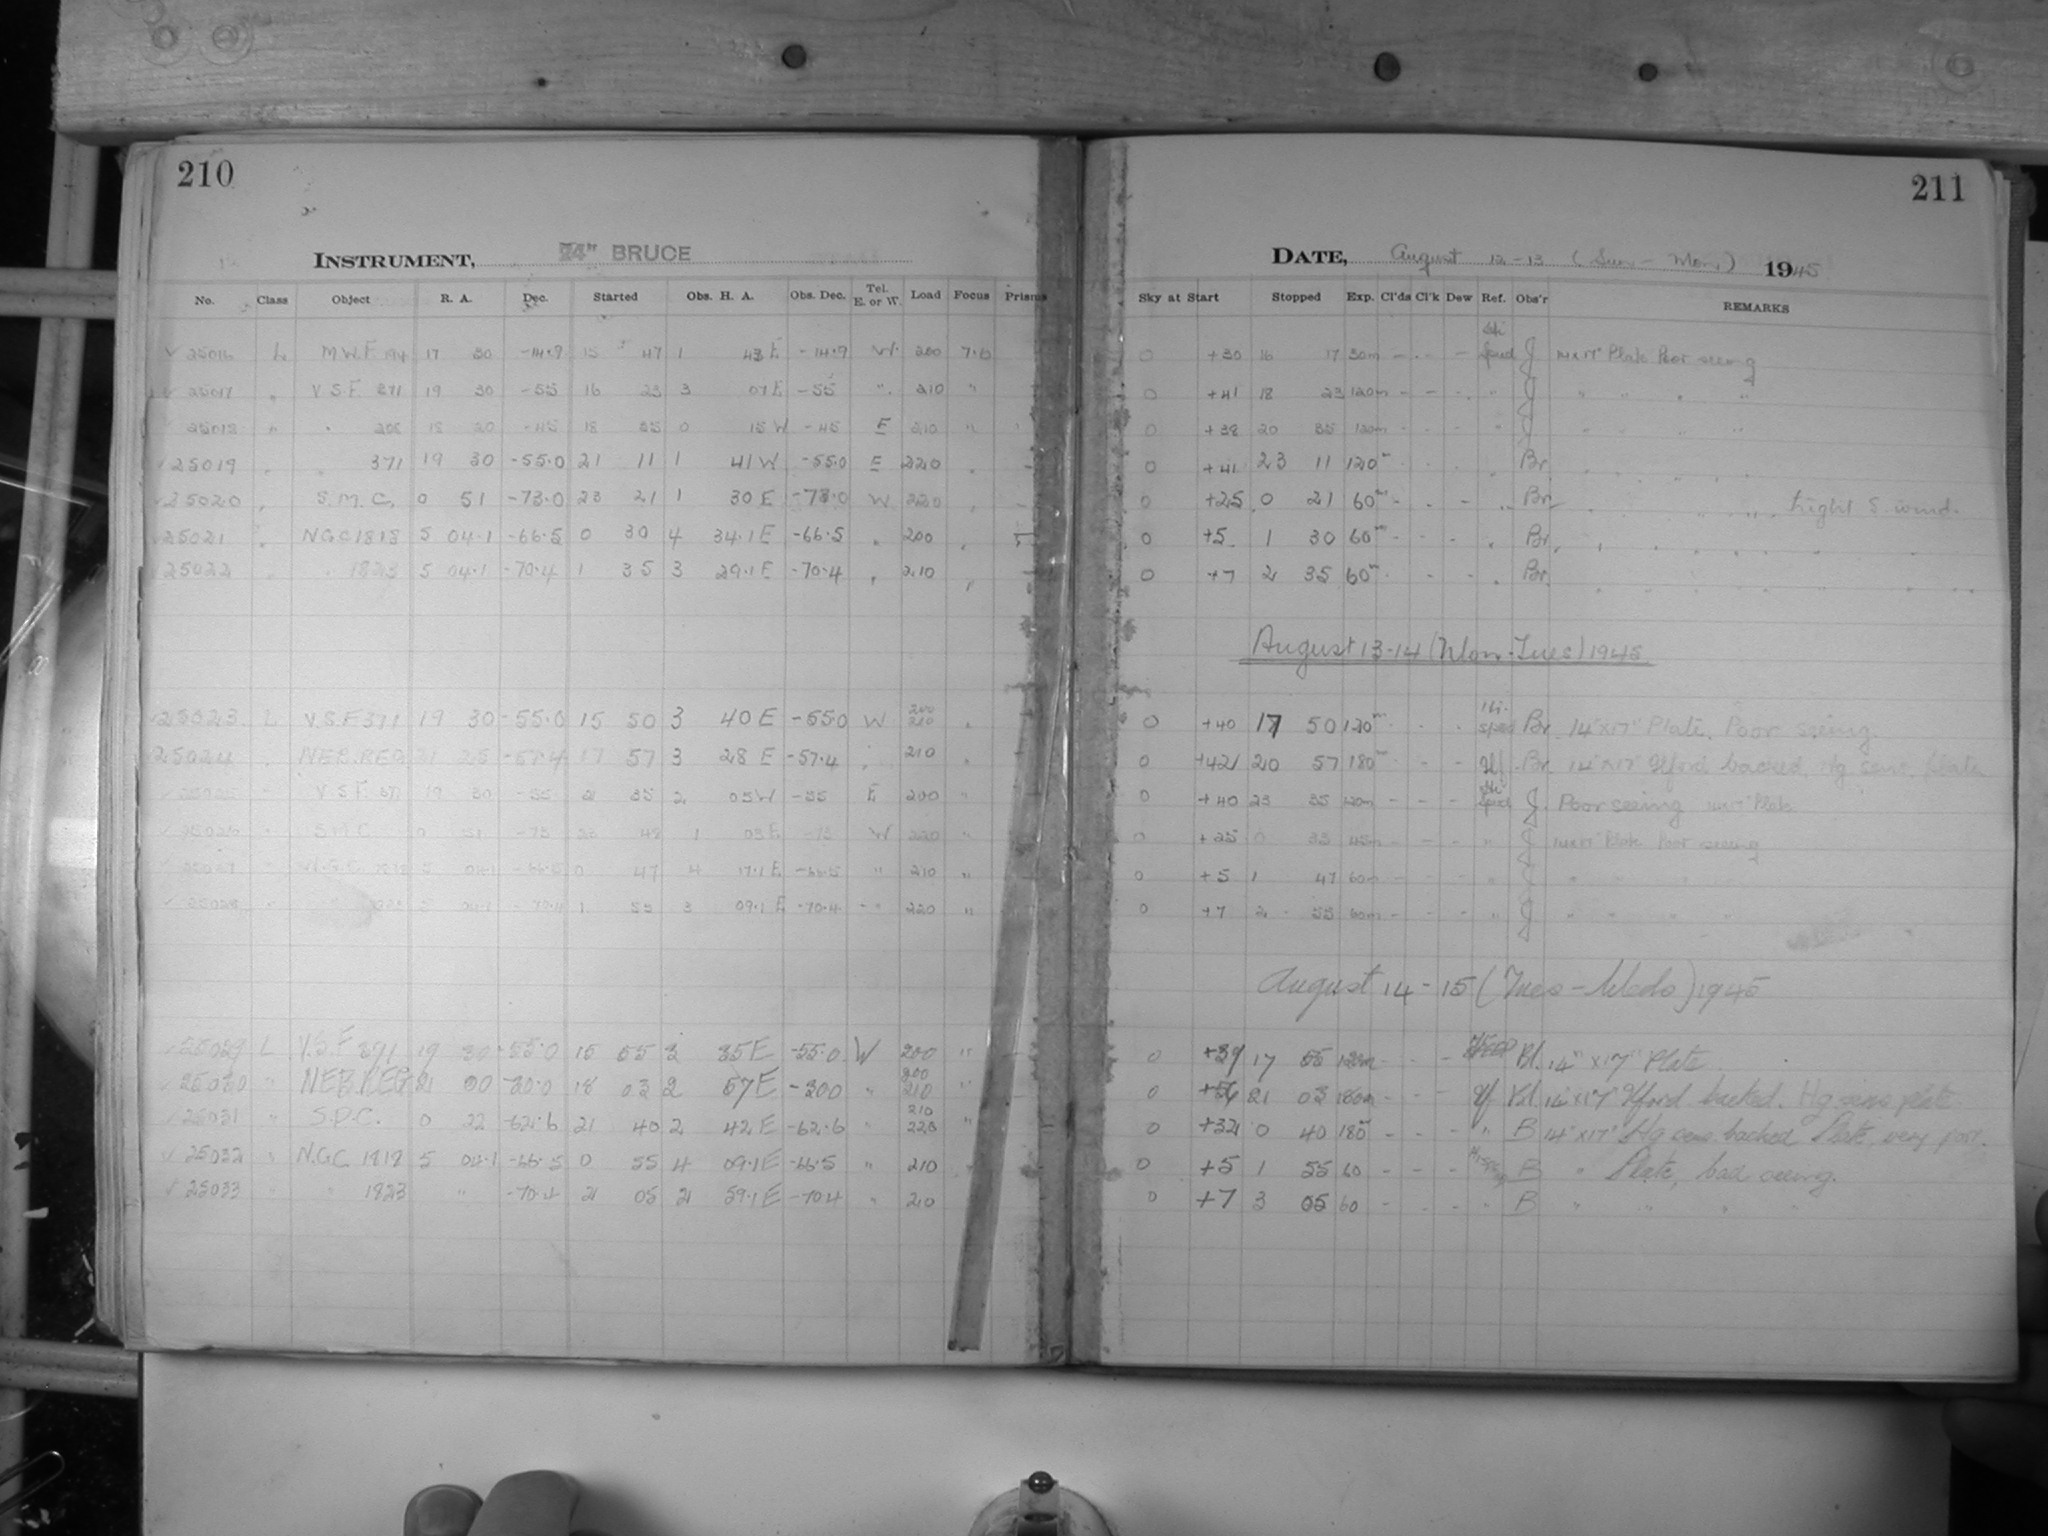 210
INSTRUMENT, 24" BRUCE
No. Class Object R. A. Dec. Started Obs. H. A. Obs. Dec. Tel. E. or W. Load Focus Prisms
25016 L M.W.F. 17 30 -14.9 15 47 1 43 E -14.9 W. 200 7.0
25017 " V.S.F. 371 19 30 -55 16 23 3 07 E -55 " 210 "
25018 " " 18 20 -45 18 35 0 15 W -45 E 210 "
25019 " " 371 19 30 -55.0 21 11 1 41 W -55.0 E 220 "
25020 " S.M.C. 0 51 -73.0 23 21 1 30 E -73.0 W 220 "
25021 " NGC 1818 5 04.1 -66.5 0 30 4 34.1 E -66.5 " 200 "
25022 " " 1823 5 04.1 -70.4 1 35 3 29.1 E -70.4 " 210 "
25023 L V.S.F 371 19 30 -55.0 15 50 3 40 E -55.0 W 200 210 "
25024 " NEB. REG 21 25 -57.4 17 57 3 28 E -57.4 " 210
25025 " V.S.F. 371 19 30 -55 21 35 2 05 W -55 E 200 "
25026 " S.M.C. 0 51 -73 23 48 1 03 E -73 W 220 "
25027 " N.G.C. 1818 5 04.1 -66.5 0 47 4 17.1 E -66.5 " 210 "
25028 " 1823 5 04.1 -70.4 1 55 3 09.1 E -70.4 " 220 "
25029 L V.S.F 371 19 30 -55.0 15 55 3 35 E -55.0 W 200 "
25030 " NEB. REG 21 00 -30.0 18 03 2 57 E -30.0 " 200 210 "
25031 " S.P.C. 0 22 -62.6 21 40 2 42 E -62.6 " 210 220
25032 " N.G.C 1818 5 04.1 -66.5 0 55 4 09.1 E -66.5 " 210
25033 " " 1823 " -70.4 2 05 2 59.1 E -70.4 " 210
211
DATE, August 12-13 (Sun - Mon.) 1945
Sky at Start Stopped Exp. Cl'ds Cl'k Dew Ref. Obs'r REMARKS
0 +30 16 17 30m - - - Hi Speed J 14x17" Plate Poor seeing
0 +41 18 23 120m - - - " J " " " "
0 +38 20 35 120m " J " " " "
0 +41 23 11 120m " Br
0 +25 0 21 60m - - " Br " " " " hight S wind.
0 +5 1 30 60m - - - " Br
0 +7 2 35 60m - - " Br
August 13-14 (Mon-Tues) 1945
0 +40 17 50 120m Hi. Speed Br 14"x17" Plate. Poor seeing.
0 +42 20 57 180m - - Ilf. Br 14"x17" Ilford backed Hg sens. Plate
0 +40 23 35 120m - - - Hi Speed J. Poor seeing 14x17" Plate
0 +25 0 33 45m - - - " J 14x17" Plate Poor seeing
0 +5 1 47 60m - - - " J " " " "
0 +7 2 55 60m - - - " J " " " "
August 14-15 (Tues - Weds) 1945
0 17 55 120m - - - Bl. 14" x 17" Plate
0 21 03 180m - - - Ilf Bl 14"x17" Ilford backed. Hg sens plate
0 +32 0 40 180 - - - " B 14"x17" Hg sens. backed Plate, very poor.
0 +5 1 55 60 - - - B " Plate, bad seeing.
0 +7 3 05 60 - - - " B " " " "